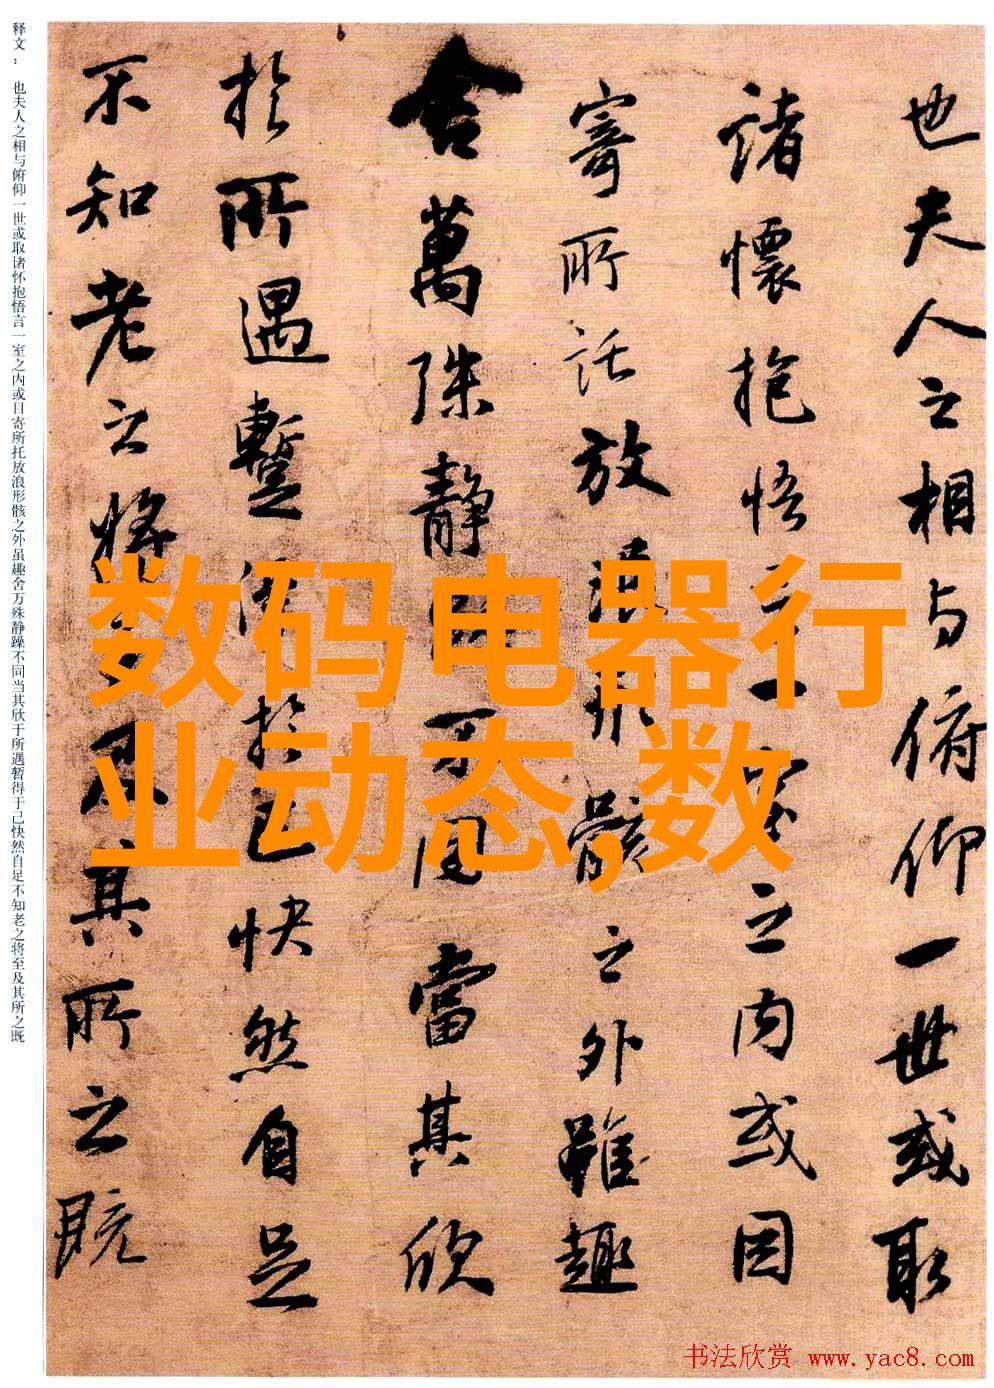 也夫人之相与俯仰一世或取
諸懷抱悟言一室之内或因
寄所託放浪形骸之外雖趣
舍萬殊静不同當其欣
於所遇暫得於己快然自足
不知老之將及其所之既
释文： 也夫人之相与俯仰一世或取诸怀抱悟言一室之内或目寄所托放浪形骸之外虽趣舍万殊静躁不同当其欣于所遇暂得于己快然自足不知老之将至及其所之既
数码电器行
业动态,数
书法欣赏 www.yac8.com